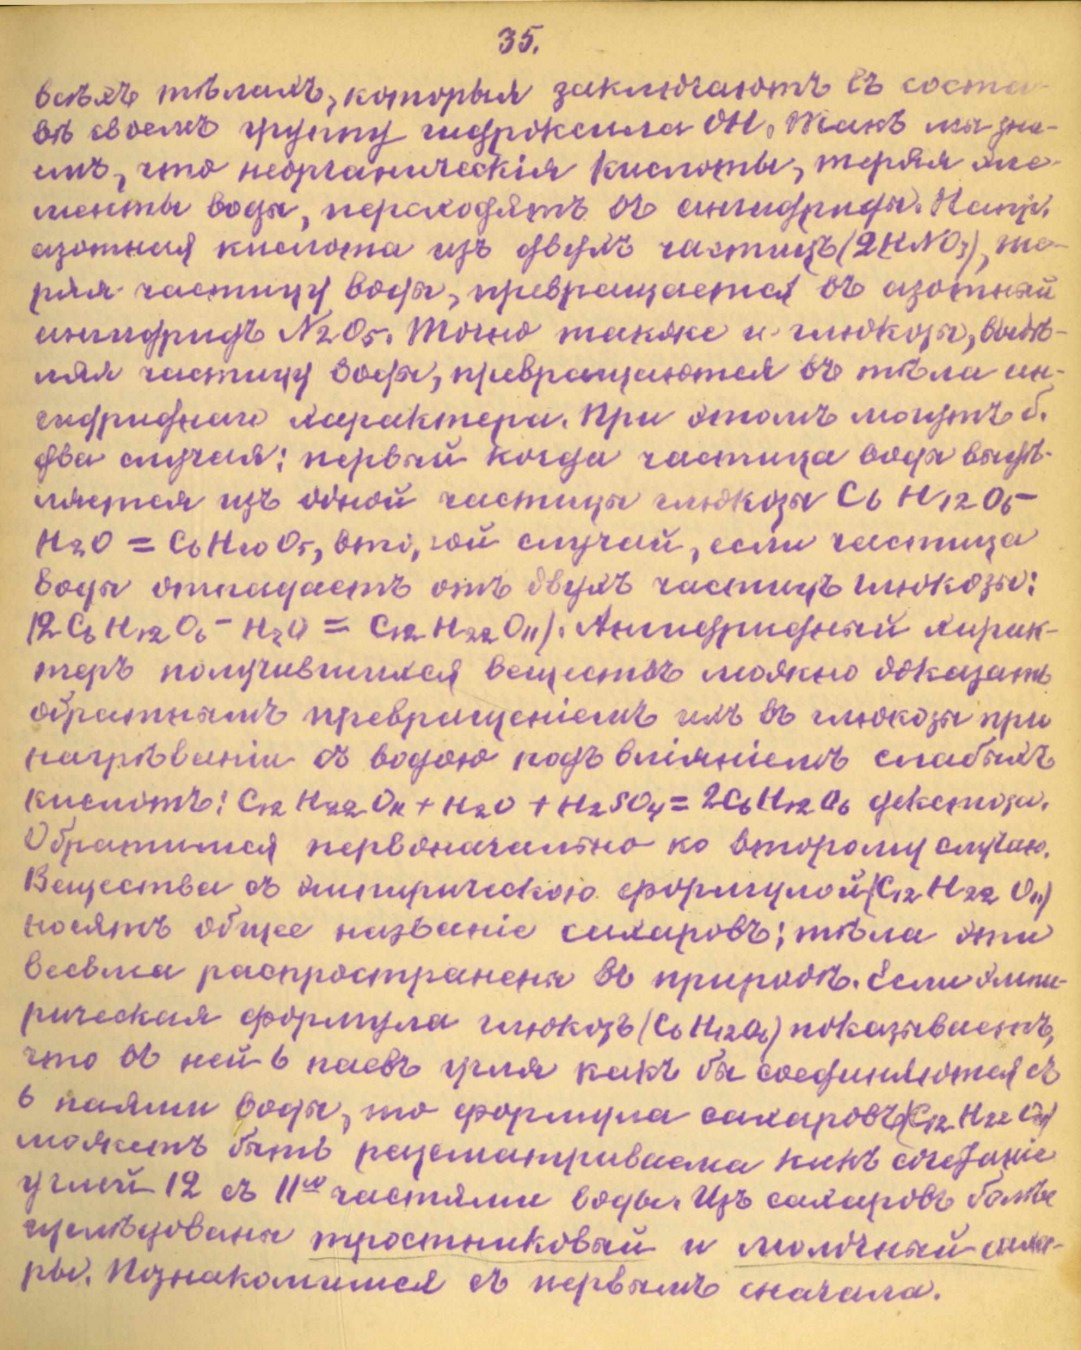 35.
всѣхъ тѣлахъ, которыя заключаютъ въ соста-
вѣ своемъ группу гидроксила OH. Такъ мы зна-
емъ, что неорганическія кислоты, теряя эле-
менты воды, переходятъ въ ангидриды. Напр.
азотная кислота изъ двухъ частицъ (2HNO3), те-
ряя частицу воды, превращается въ азотный
ангидридъ N2O5. Точно также и глюкозы, выдѣ-
ляя частицу воды, превращаются въ тѣла ан-
гидриднаго характера. При этомъ могутъ б.
два случая: первый когда частица воды выдѣ-
ляется изъ одной частицы глюкозы C6H12O6 -
H2O = C6H10O5, второй случай, если частица
воды отпадаетъ отъ двухъ частицъ глюкозы:
(2C6H12O6 - H2O = C12H22O11). Ангидридный харак-
теръ получившихся веществъ можно доказать
обратнымъ превращеніемъ ихъ въ глюкозы при
нагрѣваніи съ водою подъ вліяніемъ слабыхъ
кислотъ: C12H22O11 + H2O + H2SO4 = 2C6H12O6 декстоза.
Обратимся первоначально ко второму случаю.
Вещества съ эмпирическою формулой (C12H22O11)
носятъ общее названіе сахаровъ; тѣла эти
весьма распространены въ природѣ. Если эмпи-
рическая формула глюкозъ (C6H12O6) показываетъ,
что въ ней 6 паевъ угля какъ бы соединяются съ
6 паями воды, то формула сахаровъ (C12H22O11)
можетъ быть разсматриваема какъ сочетаніе
углей 12 съ 11ю частями воды. Изъ сахаровъ болѣе
изслѣдованы тростниковый и молочный саха-
ры. Познакомимся съ первымъ сначала.